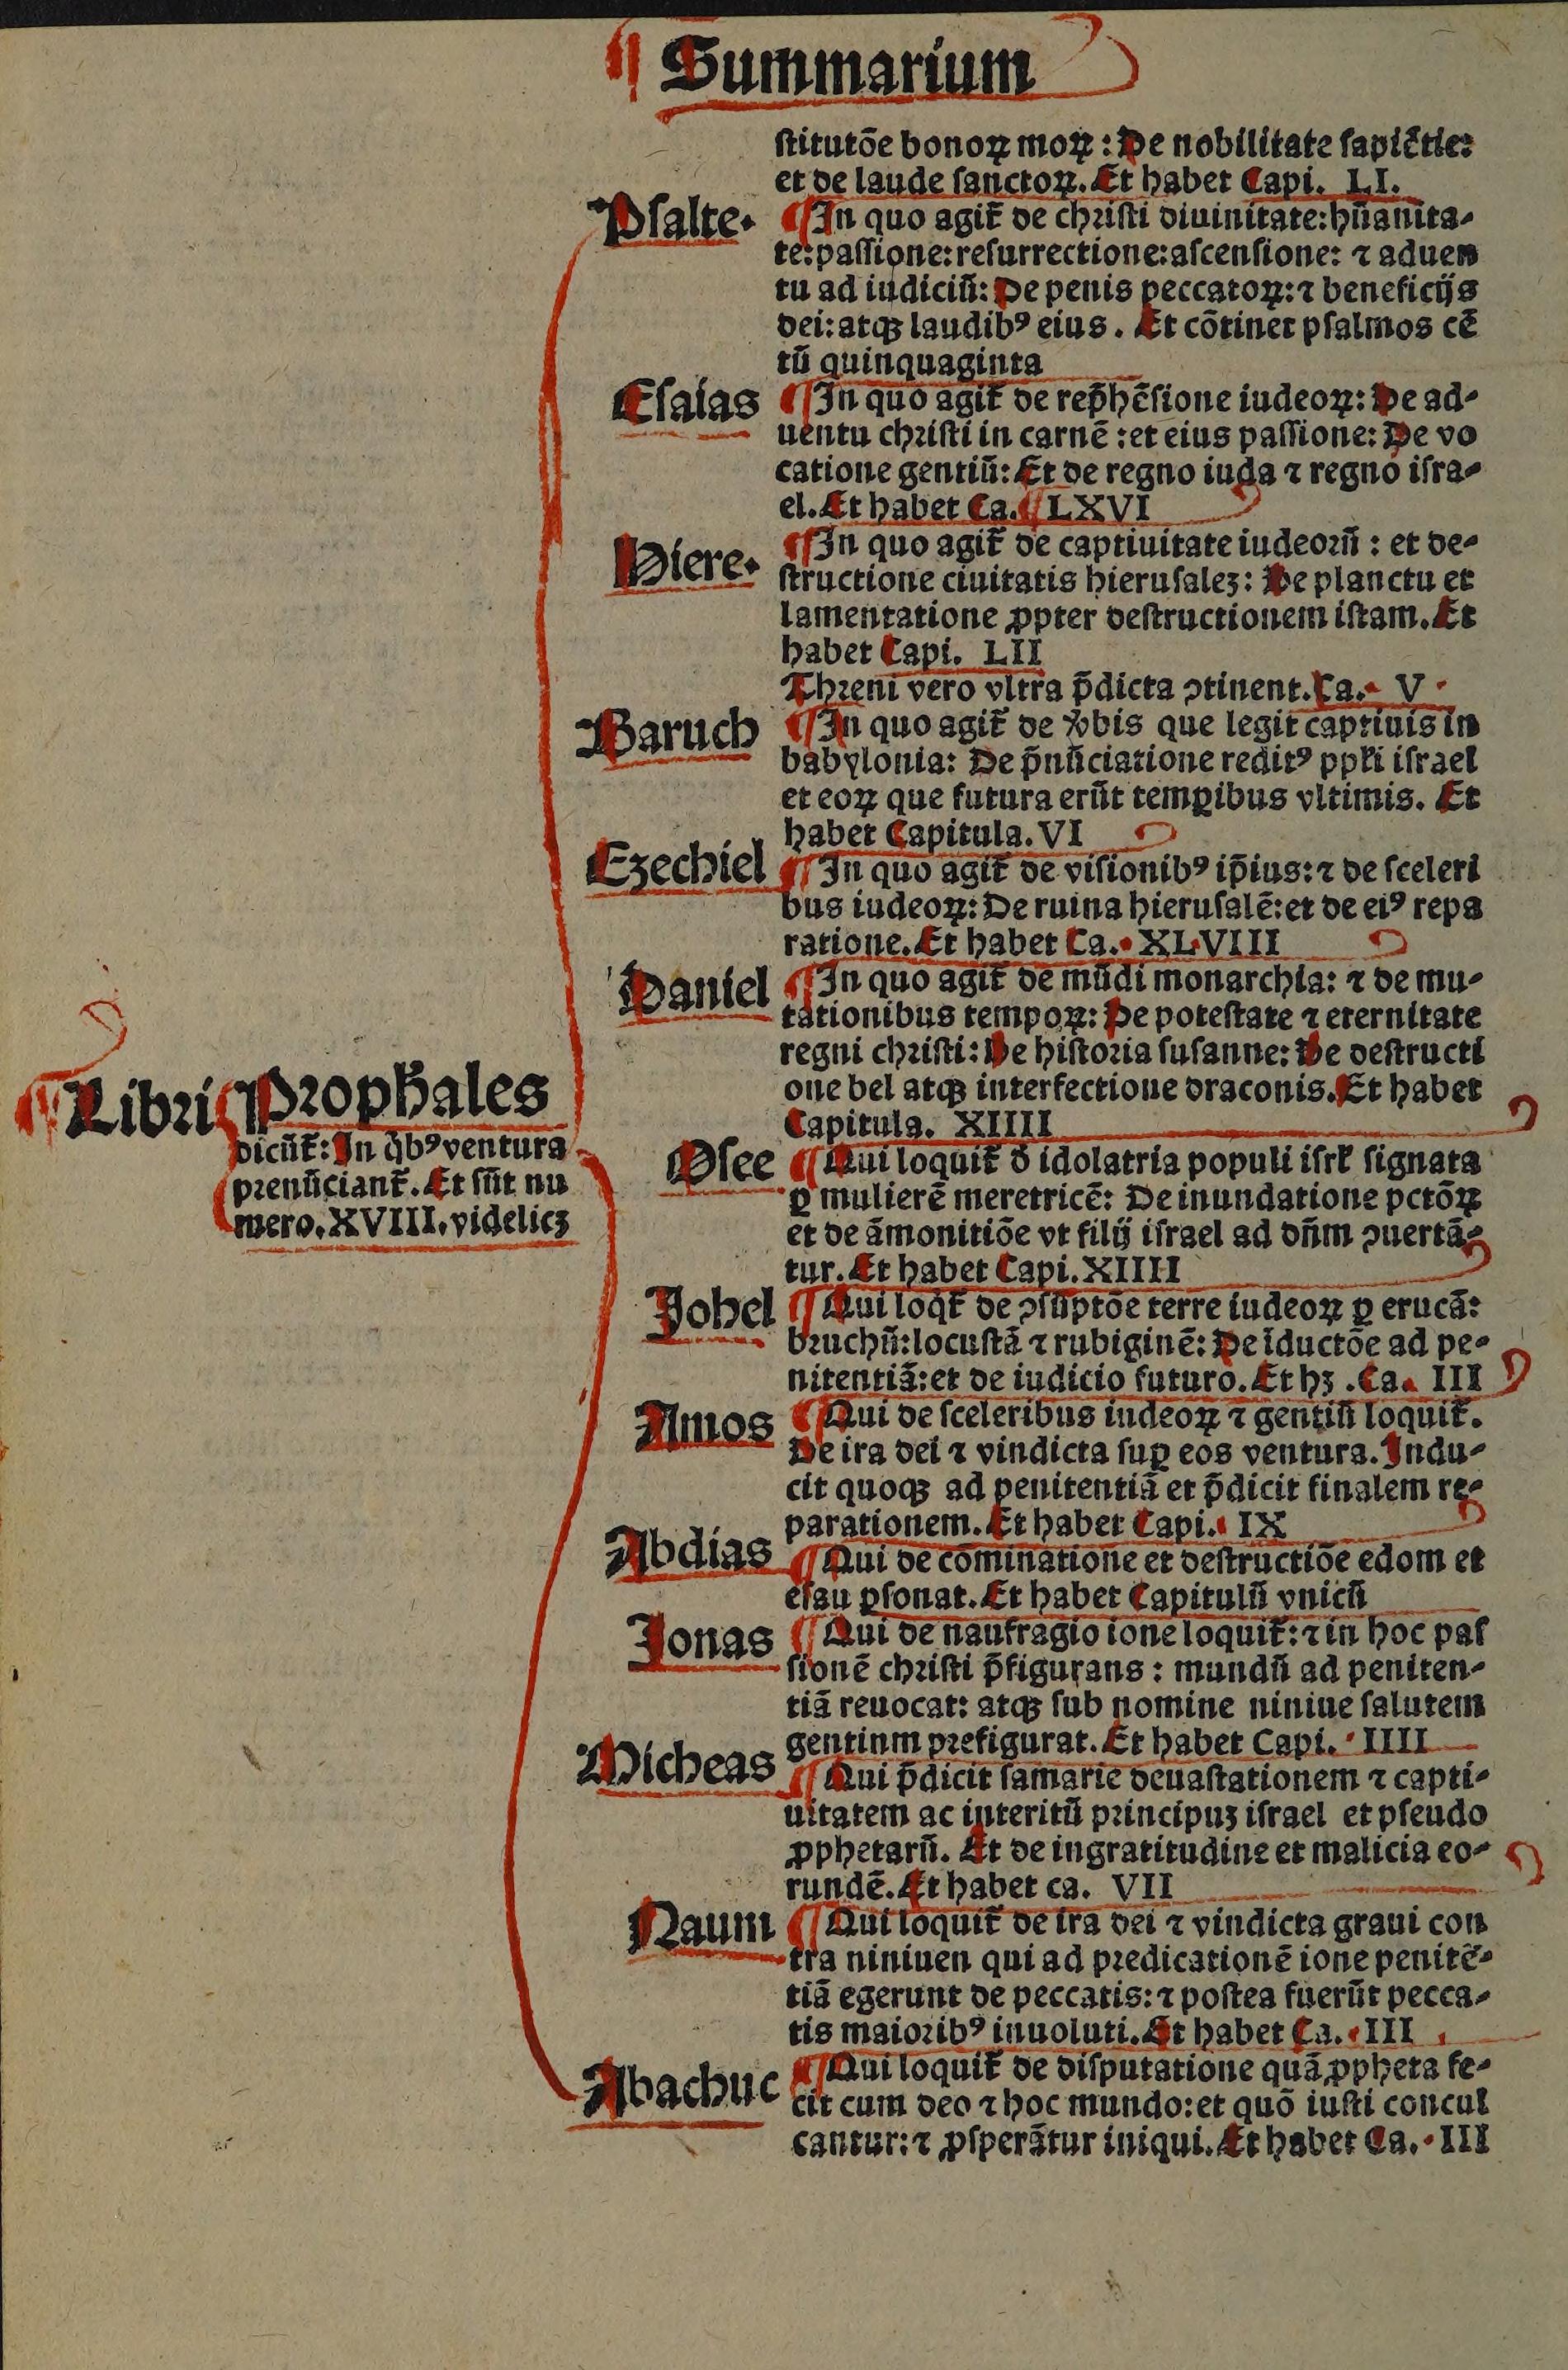 ¶ Summarium
ſtitutõe bonoꝝ moꝝ: De nobilitate ſapiẽtie:
et de laude ſanctoꝝ. Et habet Capi. LI.
Pſalte.
¶ In quo agit᷑ de chꝛiſti diuinitate: hũanita⸗
te: paſſione: reſurrectione: aſcenſione: ⁊ aduen
tu ad iudiciũ: De penis peccatoꝝ: ⁊ beneficijs
dei: atqꝫ laudibꝰ eius. Et cõtinet pſalmos cẽ
tũ quinquaginta
Eſaias
¶ In quo agit᷑ de rep̄hẽſione iudeoꝝ: De ad⸗
uentu chꝛiſti in carnẽ: et eius paſſione: De vo
catione gentiũ: Et de regno iuda ⁊ regno iſra⸗
el. Et habet Ca. ¶ LXVI
Hiere.
¶ In quo agit᷑ de captiuitate iudeoꝛũ: et de⸗
ſtructione ciuitatis hieruſaleꝫ: De planctu et
lamentatione ꝓpter deſtructionem iſtam. Et
habet Capi. LII
Thꝛeni vero vltra p̄dicta ꝯtinent. Ca. V
Baruch
¶ In quo agit᷑ de v̾bis que legit captiuis in
babylonia: De p̄nũciatione reditꝰ ppl̓i iſrael
et eoꝝ que futura erũt temꝑibus vltimis. Et
habet Capitula. VI
Ezechiel
¶ In quo agit᷑ de viſionibꝰ ip̄ius: ⁊ de ſceleri
bus iudeoꝝ: De ruina hieruſalẽ: et de eiꝰ repa
ratione. Et habet Ca. XLVIII
Daniel
¶ In quo agit᷑ de mũdi monarchia: ⁊ de mu⸗
tationibus tempoꝝ: De poteſtate ⁊ eternitate
regni chꝛiſti: De hiſtoꝛia ſuſanne: De deſtructi
one bel atqꝫ interfectione draconis. Et habet
Capitula. XIIII
¶ Libꝛi Pꝛoph̓ales
dicũt᷑: In q̇bꝰ ventura
pꝛenũciant᷑. Et ſũt nu
mero. XVIII. videlicꝫ
Oſee
¶ Qui loquit᷑ d̓ idolatria populi iſrl̓ ſignata
ꝑ mulierẽ meretricẽ: De inundatione pctõꝝ
et de ãmonitiõe vt filij iſrael ad dñm ꝯuertã⸗
tur. Et habet Capi. XIIII
Johel
¶ Qui loq̇t᷑ de ꝯſũptõe terre iudeoꝝ ꝑ erucã:
bꝛuchũ: locuſtã ⁊ rubiginẽ: De ĩductõe ad pe⸗
nitentiã: et de iudicio futuro. Et hꝫ. Ca. III
Amos
¶ Qui de ſceleribus iudeoꝝ ⁊ gentiũ loquit᷑.
De ira dei ⁊ vindicta ſuꝑ eos ventura. Indu⸗
cit quoqꝫ ad penitentiã et p̄dicit finalem re⸗
parationem. Et habet Capi. IX
Abdias
¶ Qui de cõminatione et deſtructiõe edom et
eſau ꝑſonat. Et habet Capitulũ vnicũ
Jonas
¶ Qui de naufragio ione loquit᷑: ⁊ in hoc paſ
ſionẽ chꝛiſti p̄figurans: mundũ ad peniten⸗
tiã reuocat: atqꝫ ſub nomine niniue ſalutem
gentinm pꝛefigurat. Et habet Capi. IIII
Micheas
¶ Qui p̄dicit ſamarie deuaſtationem ⁊ capti⸗
uitatem ac interitũ pꝛincipuꝫ iſrael et pſeudo
ꝓphetarũ. Et de ingratitudine et malicia eo⸗
rundẽ. Et habet ca. VII
Naum
¶ Qui loquit᷑ de ira dei ⁊ vindicta graui con
tra niniuen qui ad pꝛedicationẽ ione penitẽ⸗
tiã egerunt de peccatis: ⁊ poſtea fuerũt pecca⸗
tis maioꝛibꝰ inuoluti. Et habet Ca. III
Abachuc
¶ Qui loquit᷑ de diſputatione quã ꝓpheta fe⸗
cit cum deo ⁊ hoc mundo: et quõ iuſti concul
cantur: ⁊ ꝓſperãtur iniqui. Et habet Ca. III